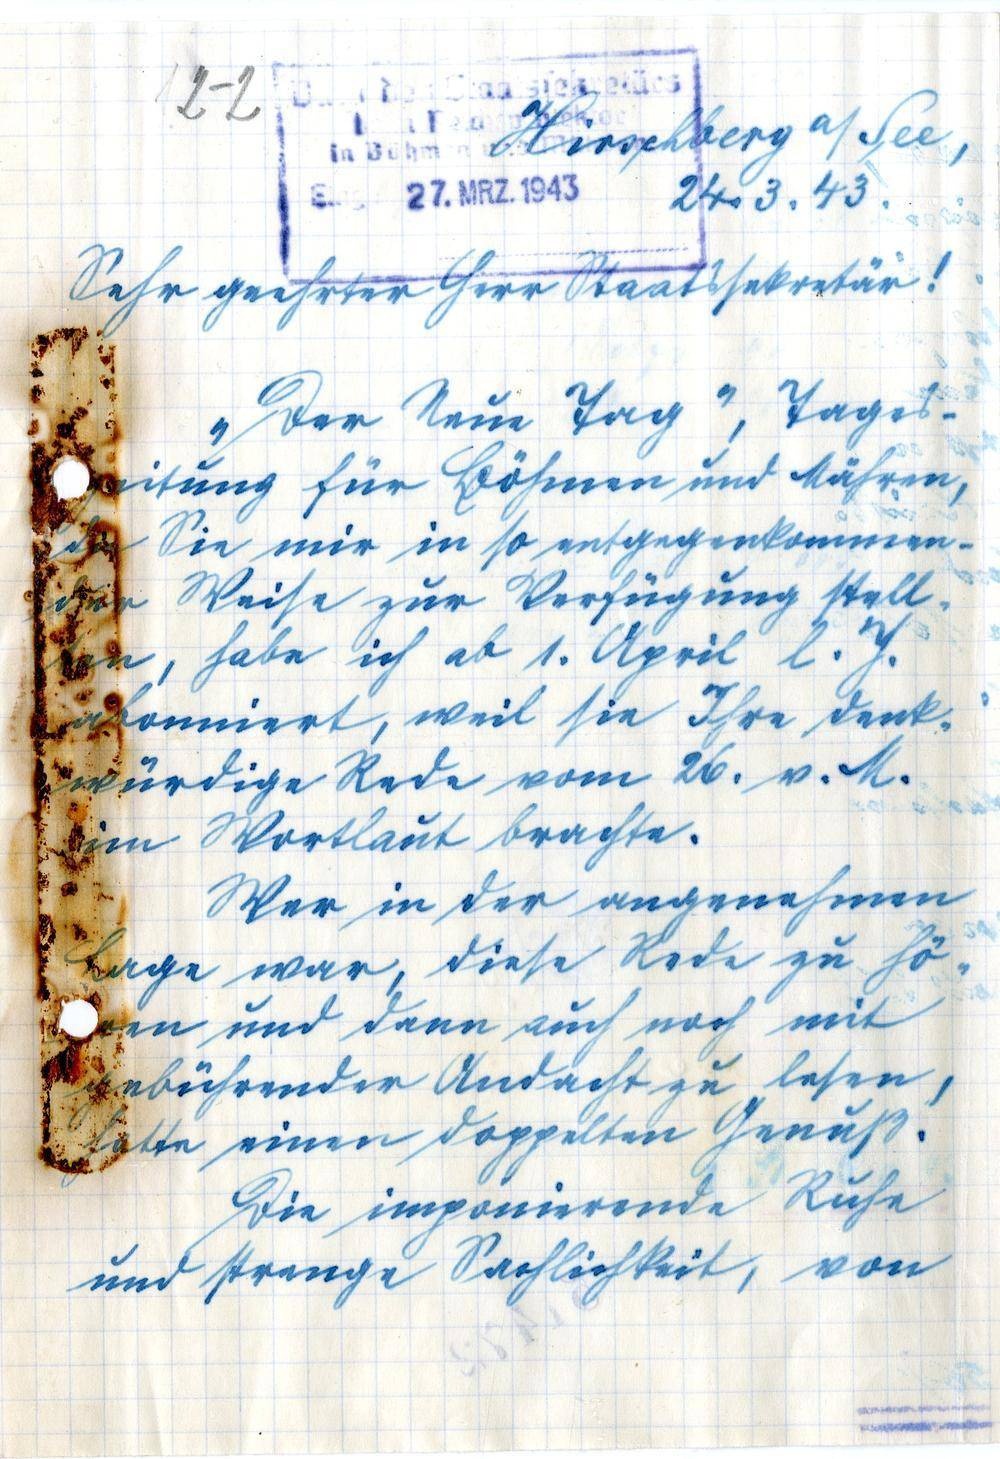 12-2
Büro des Staatssekretärs
beim Reichsprotektor
in Böhmen und Mähren
Hirschberg a/See,
27. MRZ. 1943
24.3.43.
Sehr geehrter Herr Staatssekretär!
„Der Neue Tag", Tages-
zeitung für Böhmen und Mähren,
die Sie mir in so entgegenkommen-
der Weise zur Verfügung stell-
ten, habe ich ab 1. April l. J.
abonniert, weil sie Ihre denk-
würdige Rede vom 26. v. M.
im Wortlaut brachte.
Wer in der angenehmen
Lage war, diese Rede zu hö-
ren und dann auch noch mit
gebührender Andacht zu lesen,
hatte einen doppelten Genuß.
Die imponierende Ruhe
und strenge Sachlichkeit, von